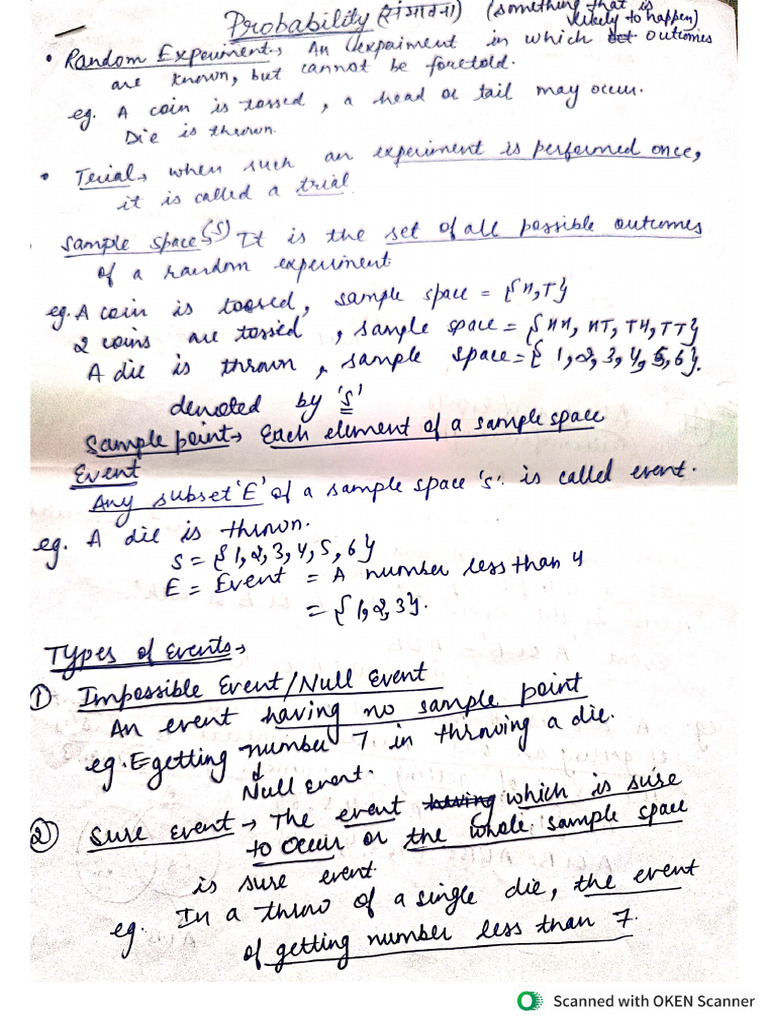 Probability (संभावना) (something that is likely to happen)
• Random Experiment → An expaiment in which outcomes
are known, but cannot be foretold.
eg. A coin is tossed, a head or tail may occur.
Die is thrown.
• Terial → when such an experiment is performed once,
it is called a trial
Sample space (S) → It is the set of all possible outcomes
of a random experiment
eg. A coin is toossed, sample space = {H,T}
2 coins are tossed, sample space = {HH, HT, TH, TT}
A die is thrown, sample space = {1,2,3,4,5,6}.
denoted by 'S'
Sample point → Each element of a sample space
Event
Any subset 'E' of a sample space 'S' is called event.
eg. A die is thrown.
S = {1,2,3,4,5,6}
E = Event = A number less than 4
= {1,2,3}.
Types of Events →
① Impossible Event/Null Event
An event having no sample point
eg. E getting number 7 in throwing a die.
↓
Null Event.
② Sure event → The event having which is sure
to occur or the whole sample space
is sure event.
eg. In a throw of a single die, the event
of getting number less than 7.
Scanned with OKEN Scanner